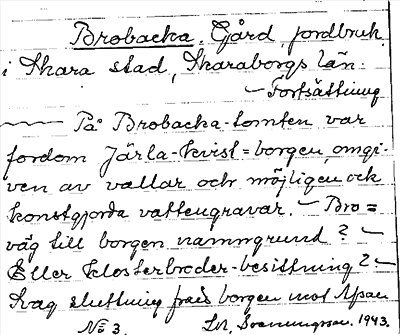 Brobacka. Gård, jordbruk
i Skara stad, Skaraborgs län.
— Fortsättning
— På Brobacka-tomten var
fordom Järla-kvist-borgen, omgi-
ven av vallar och möjligen ock
konstgjorda vattengravar. — Bro=
väg till borgen namngrund? —
Eller klosterbroder-besittning? —
Svag sluttning från borgen mot
No 3. 1943.